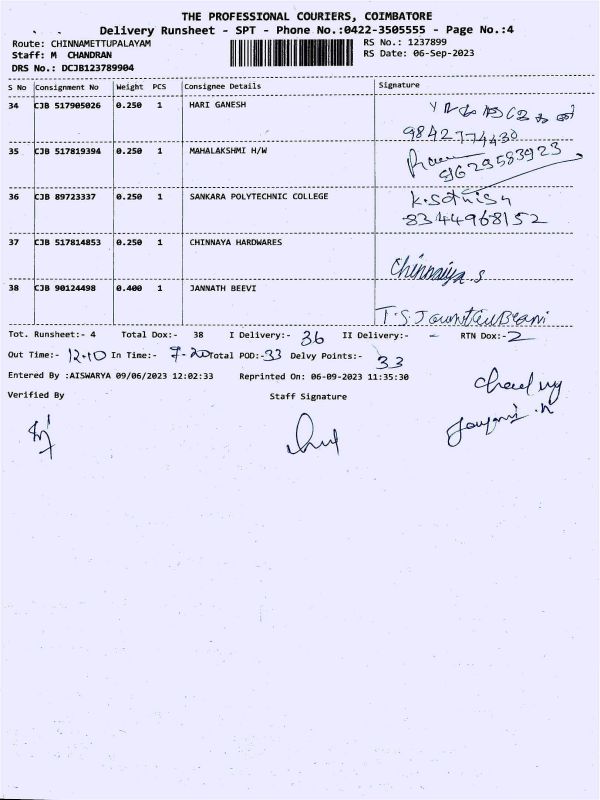 THE PROFESSIONAL COURIERS, COIMBATORE
Delivery Runsheet - SPT - Phone No.:0422-3505555 - Page No.:4
Route: CHINNAMETTUPALAYAM
RS No.: 1237899
Staff: M CHANDRAN
RS Date: 06-Sep-2023
DRS No.: DCJB123789904
S No Consignment No Weight PCS Consignee Details Signature
34 CJB 517905026 0.250 1 HARI GANESH
9842774430
35 CJB 517819394 0.250 1 MAHALAKSHMI H/W
9629583923
36 CJB 89723337 0.250 1 SANKARA POLYTECHNIC COLLEGE
K.Sathish
8344968152
37 CJB 517814853 0.250 1 CHINNAYA HARDWARES
Chinnaiya.S
38 CJB 90124498 0.400 1 JANNATH BEEVI
T.S.
Tot. Runsheet:- 4 Total Dox:- 38 I Delivery:- 36 II Delivery:- - RTN Dox:- 2
Out Time:- 12.10 In Time:- 7.20 Total POD:- 33 Delvy Points:- 33
Entered By :AISWARYA 09/06/2023 12:02:33 Reprinted On: 06-09-2023 11:35:30
Verified By Staff Signature